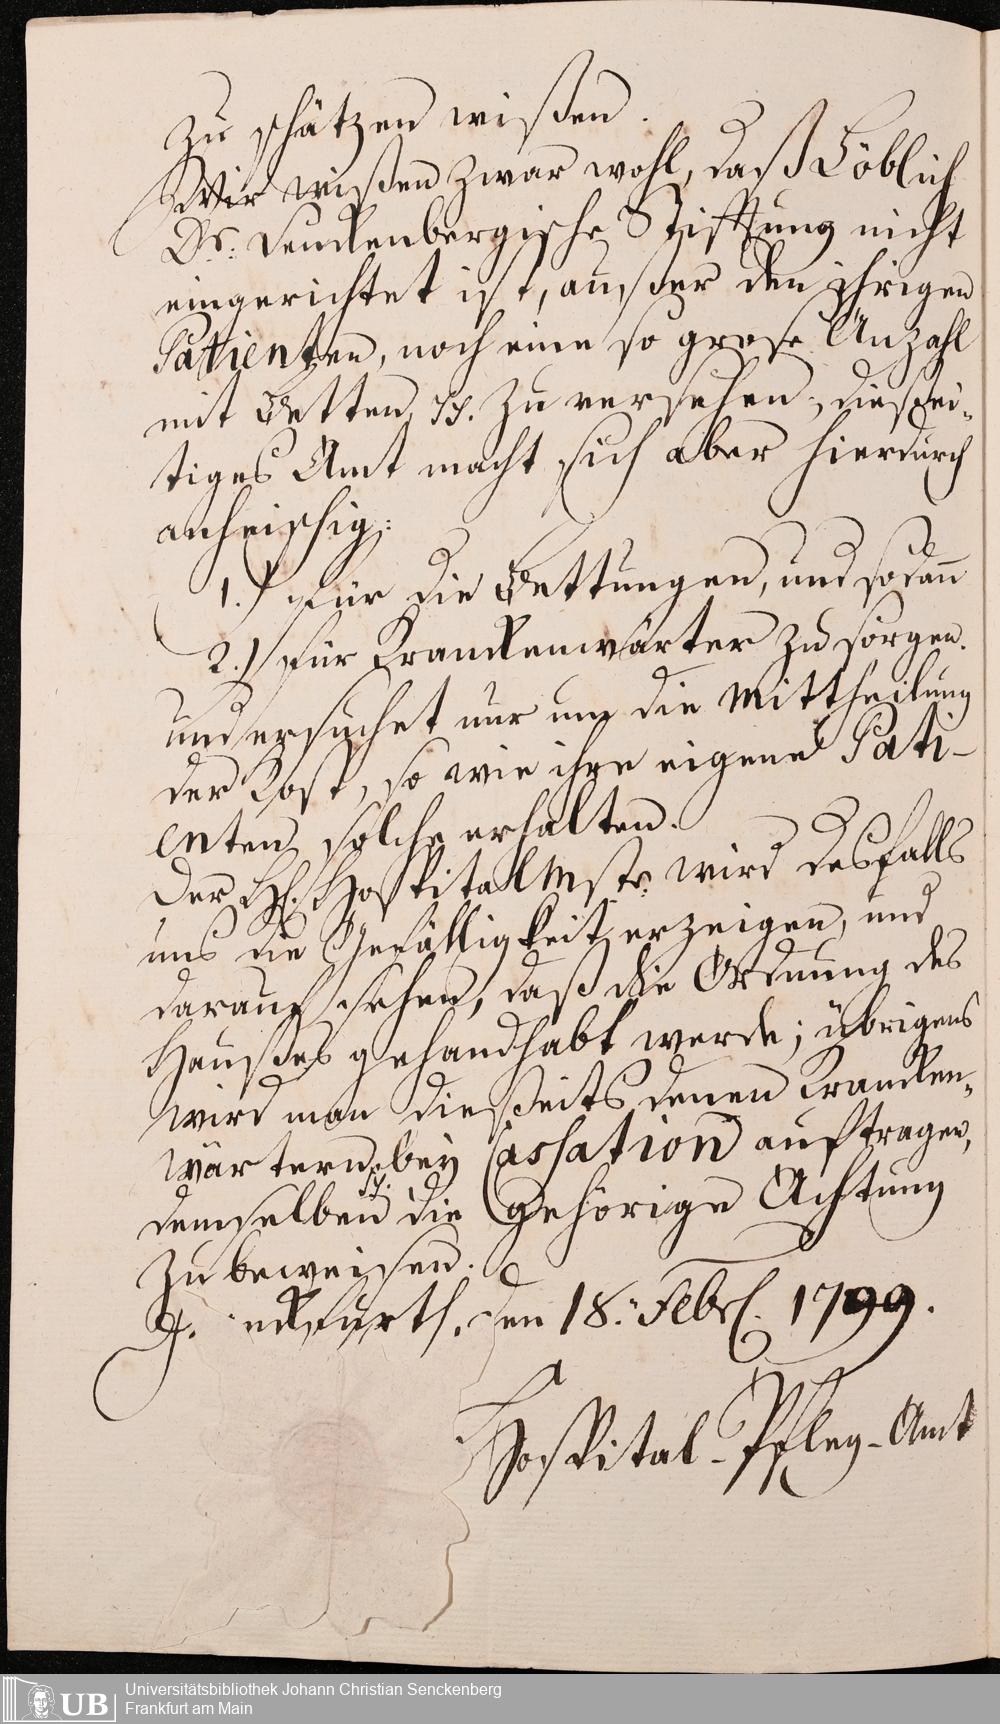 zu schätzen wißen.
Wir wißen zwar wohl, daß Löblich
Dr. Senckenbergische Stifftung nicht
eingerichtet ist, außer den ihrigen
Patienten, noch eine so grose Anzahl
mit Betten pp. zu versehen, diesßei-
tiges Amt macht sich aber hierdurch
anheischig:
1.) für die Bettungen, und sodañ
2.) für Kranckenwärter zu sorgen.
und ersuchet nur um die Mittheilung
der Kost, so wie ihre eigene Pati-
enten solche erhalten.
Der H. Hospital Mstr. wird desfalls
uns die Gefälligkeit erzeigen, und
darauf sehen, daß die Ordnung des
Haußes gehandhabt werde; übrigens
wird man dießeits denen Krancken-
wärtern bey Cassation auftragen,
demselben die gehörige Achtung
zu beweisen.
den 18. Febr. 1799.
Hospital-Pfleg-Amt
UB
Universitätsbibliothek Johann Christian Senckenberg
Frankfurt am Main